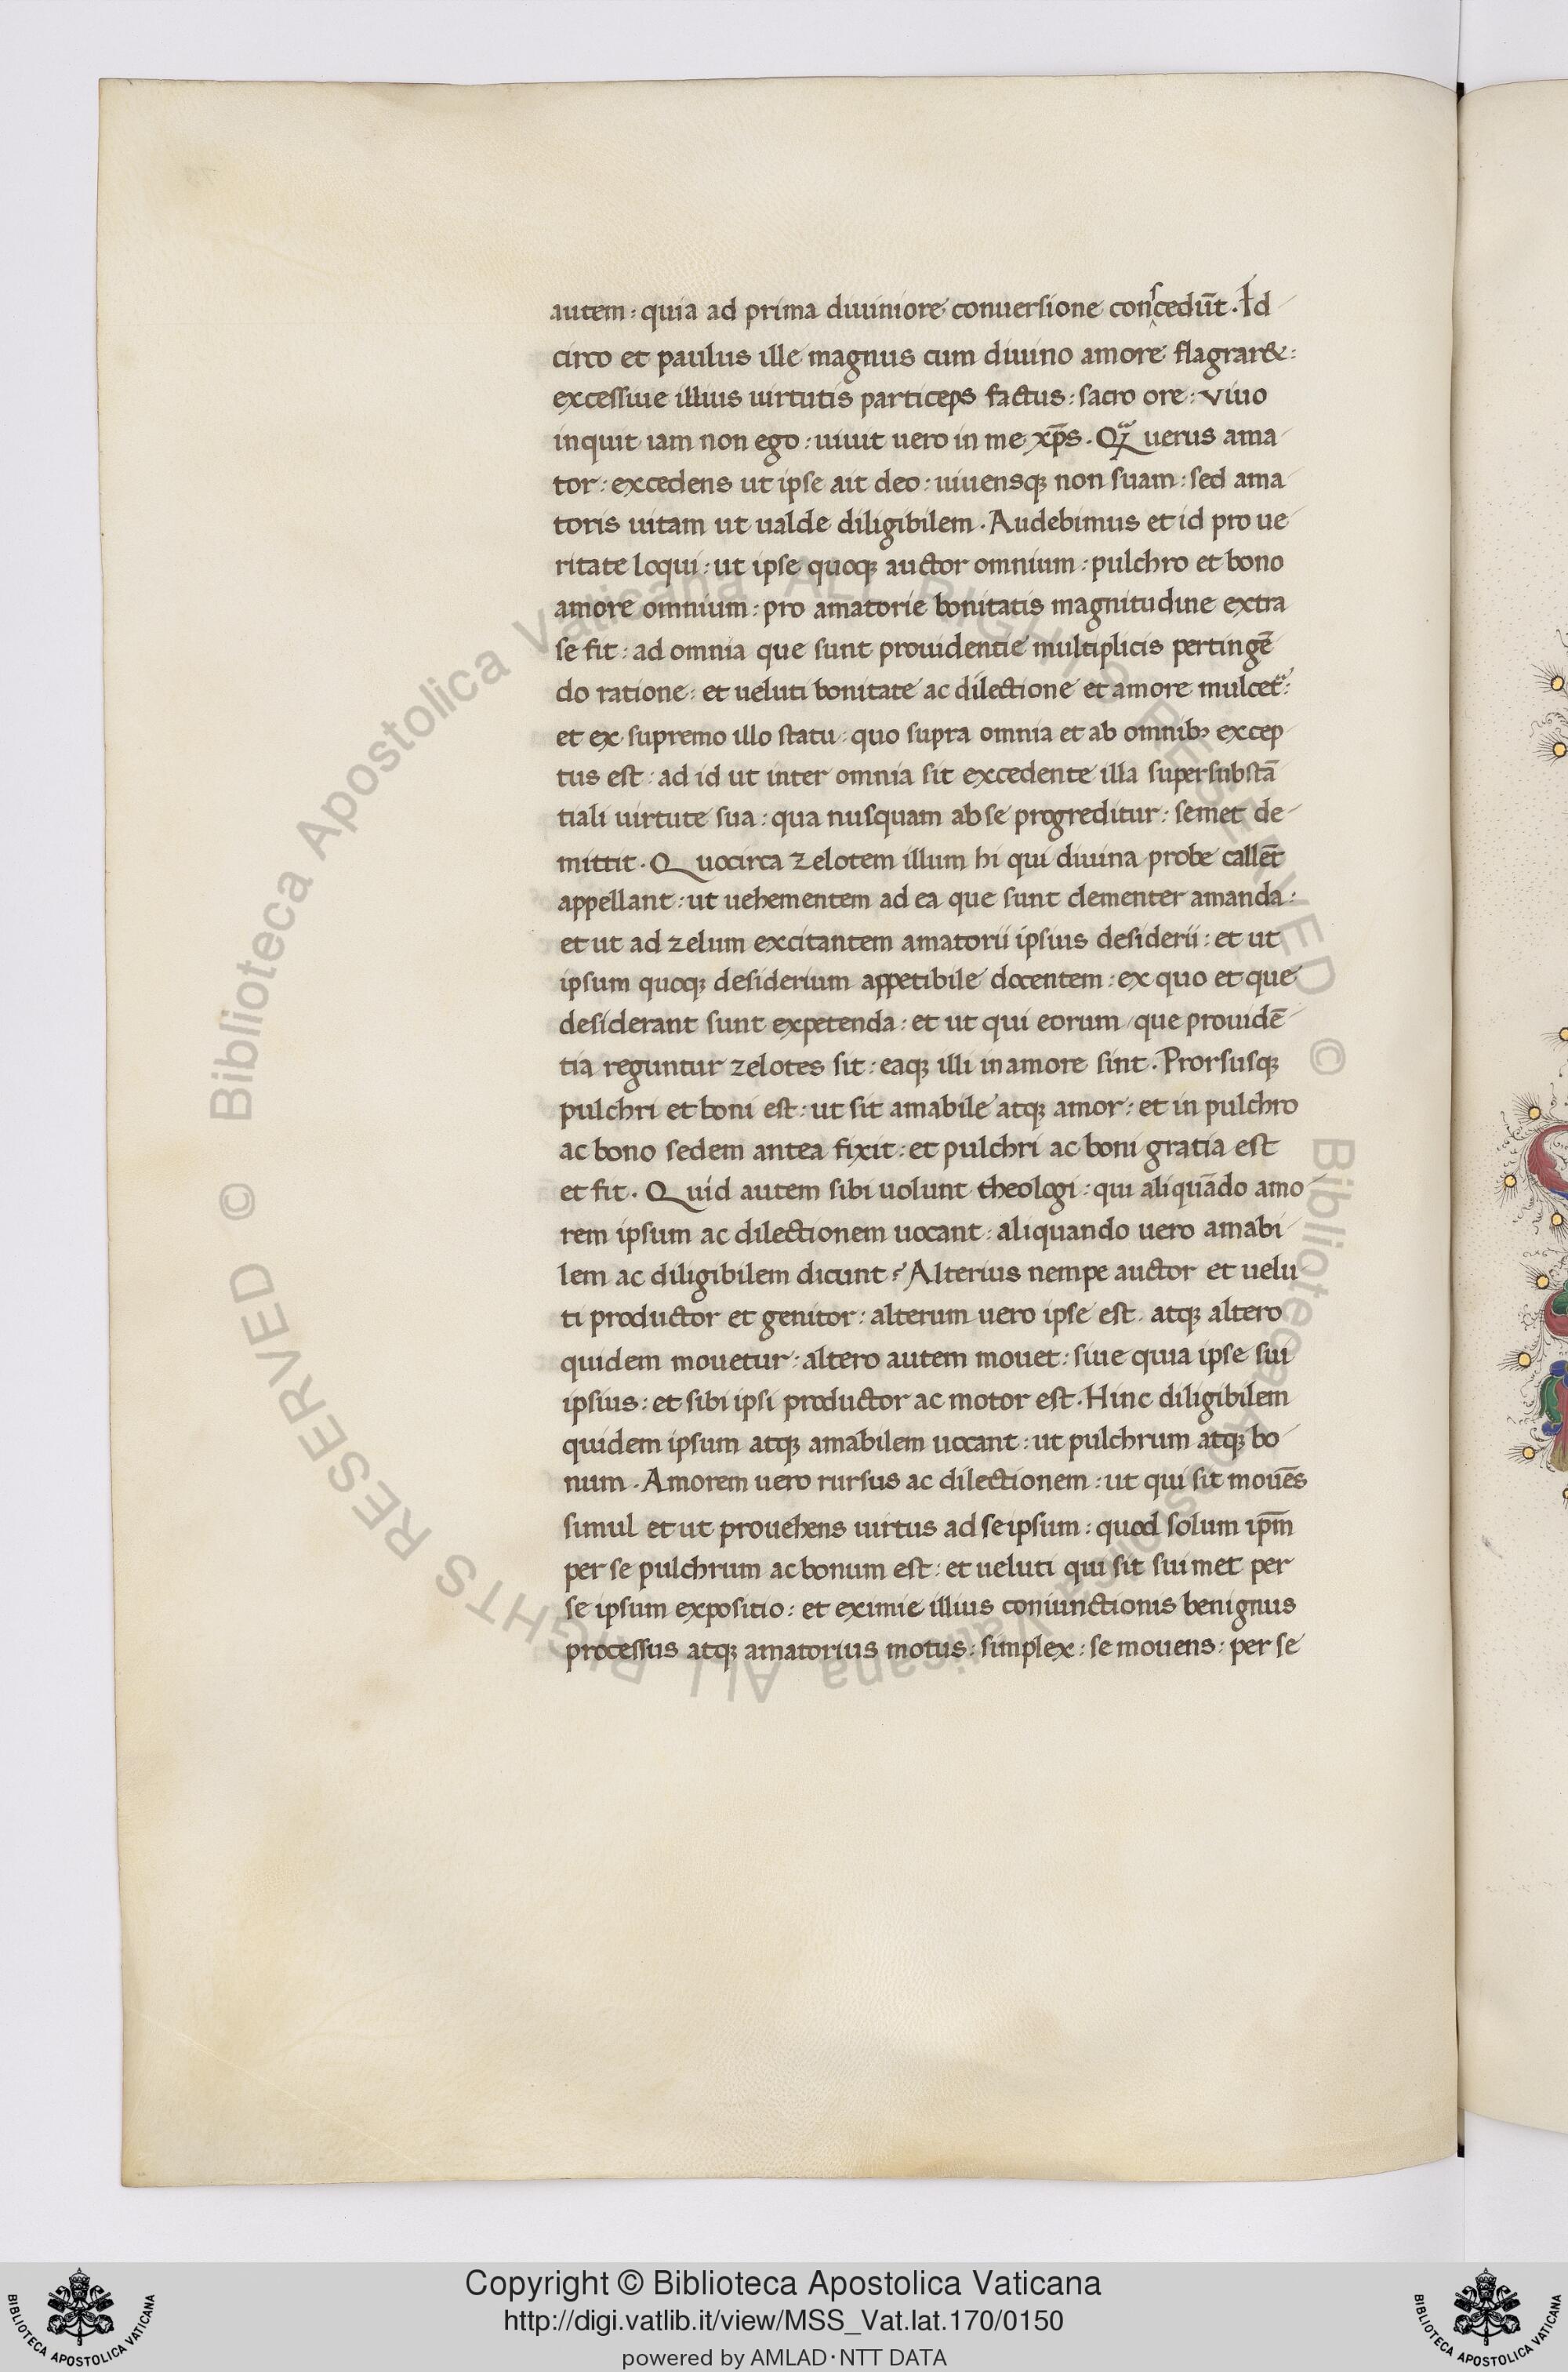 autem : quia ad prima diuiniore conuersione conſcedūt . Id
circo et paulus ille magnus cum diuino amore flagrar& :
excessiue illius uirtutis particeps factus : sacro ore : viuo
inquit iam non ego : uiuit uero in me xp̄s . uerus ama
tor : excedens ut ipse ait deo : uiuensqꝫ non suam : sed ama
toris uitam ut ualde diligibilem . Audebimus et id pro ue
ritate loqui : ut ipse quoqꝫ auctor omnium : pulchro et bono
amore omnium : pro amatorie bonitatis magnitudine extra
se fit : ad omnia que sunt prouidentie multiplicis pertingē
do ratione : et ueluti bonitate ac dilectione et amore mulcet᷑ :
et ex supremo illo statu : quo supra omnia et ab omnibꝫ excep
tus est : ad id ut inter omnia sit excedente illa supersubstā
tiali uirtute sua : qua nusquam ab se progreditur : semet de
mittit . Quocirca zelotem illum hi qui diuina probe callēt
appellant : ut uehementem ad ea que sunt clementer amanda :
et ut ad zelum excitantem amatorii ipsius desiderii : et ut
ipsum quoqꝫ desiderium appetibile docentem : ex quo et que
desiderant sunt expetenda : et ut qui eorum que prouidē
tia reguntur zelotes sit : eaqꝫ illi in amore sint . Prorsusqꝫ
pulchri et boni est : ut sit amabile atqꝫ amor : et in pulchro
ac bono sedem antea fixit : et pulchri ac boni gratia est
et fit . Quid autem sibi uolunt theologi : qui aliquādo amo
rem ipsum ac dilectionem uocant : aliquando uero amabi
lem ac diligibilem dicunt ? Alterius nempe auctor et uelu
ti productor et genitor : alterum uero ipse est . atqꝫ altero
quidem mouetur : altero autem mouet : siue quia ipse sui
ipsius : et sibi ipsi productor ac motor est . Hinc diligibilem
quidem ipsum atqꝫ amabilem uocant : ut pulchrum atqꝫ bo
num . Amorem uero rursus ac dilectionem : ut qui sit mouēs
simul et ut prouehens uirtus ad se ipsum : quod solum ip̄m
per se pulchrum ac bonum est : et ueluti qui sit sui met per
se ipsum expositio : et eximie illius coniunctionis benignus
processus atqꝫ amatorius motus : simplex : se mouens : per se
© Biblioteca Apostolica Vaticana ALL RIGHTS RESERVED © Biblioteca Apostolica Vaticana ALL RIGHTS RESERVED
Copyright © Biblioteca Apostolica Vaticana
http://digi.vatlib.it/view/MSS_Vat.lat.170/0150
powered by AMLAD·NTT DATA
BIBLIOTECA APOSTOLICA VATICANA
BIBLIOTECA APOSTOLICA VATICANA